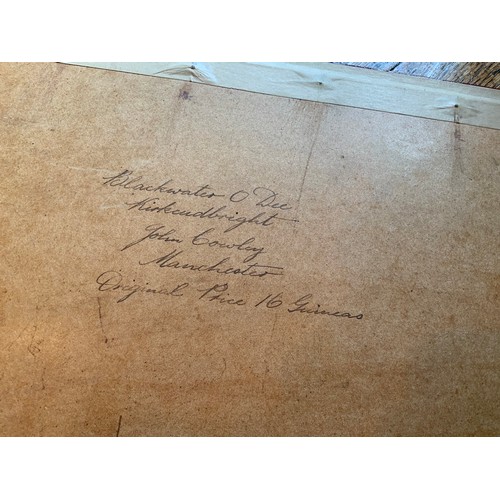 Blackwater O Dee
Kirkcudbright
John Cowley
Manchester
Original Price 16 Guineas